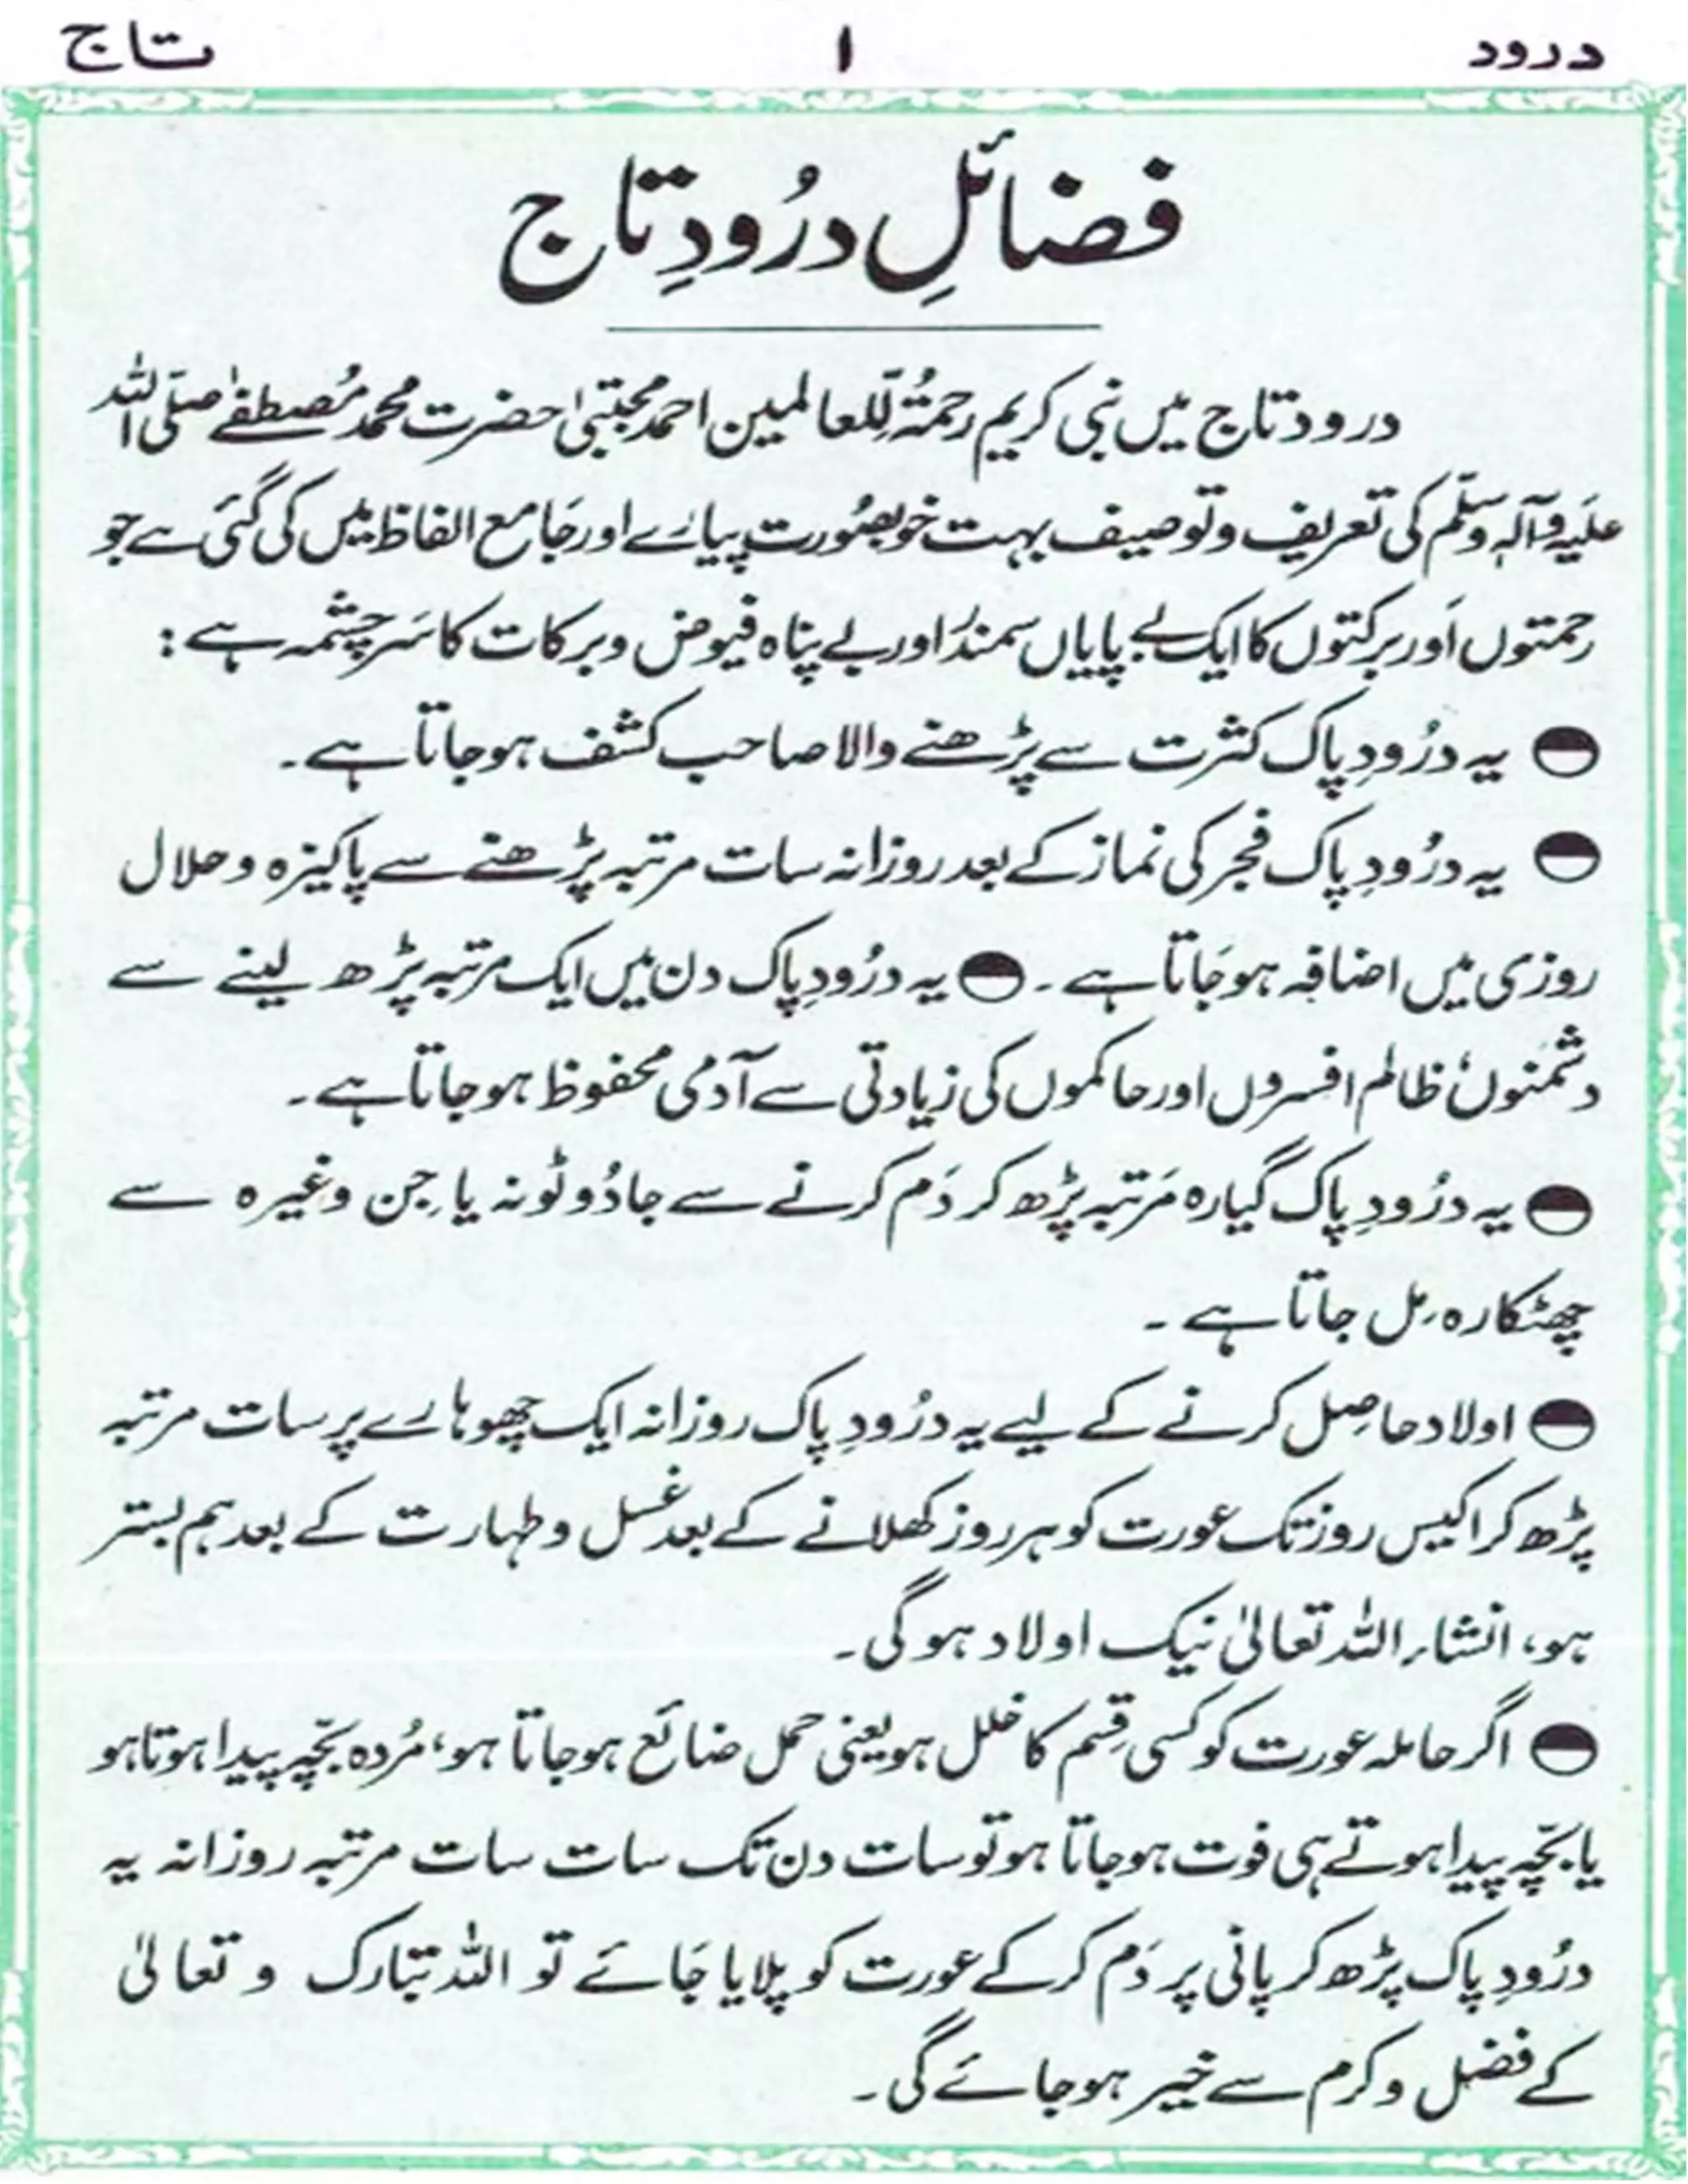 درود ۱ تاج
فضائلِ درُودِ تاج
درود تاج میں نبی کریم رحمۃُ لِّلعالمین احمد مجتبیٰ حضرت محمد مُصطفےٰ صلّی اللہ
علَیہ وآلہٖ وسلّم کی تعریف و توصیف بہت خوبصُورت پیارے اور جَامع الفاظ میں کی گئی ہے جو
رحمتوں اَور برکتوں کا ایک بے پایاں سمندر اور بے پناہ فیوض و برکات کا سَرچشمہ ہے :
یہ درُودِ پاک کثرت سے پڑھنے والا صاحب کشف ہوجاتا ہے۔
یہ درُودِ پاک فجر کی نماز کے بعد روزانہ سات مرتبہ پڑھنے سے پاکیزہ و حلال
روزی میں اضافہ ہوجَاتا ہے۔ یہ درُودِ پاک دن میں ایک مرتبہ پڑھ لینے سے
دشمنوں، ظالم افسروں اور حاکموں کی زیادتی سے آدمی محفوظ ہوجاتا ہے۔
یہ درُودِ پاک گیارہ مَرتبہ پڑھ کر دَم کرنے سے جادُو ٹونہ یا جِن وغیرہ سے
چھٹکارہ مِل جاتا ہے ۔
اولاد حاصِل کرنے کے لیے یہ درُودِ پاک روزانہ ایک چھوہارے پر سات مرتبہ
پڑھ کر اکیس روز تک عورت کو ہر روز کھلانے کے بعد غسل و طہارت کے بعد ہم بستر
ہو، انشاء اللہ تعالیٰ نیک اولاد ہوگی۔
اگر حاملہ عورت کو کسی قِسم کا خلل ہو یعنی حمل ضائع ہوجاتا ہو، مُردہ بچّہ پیدا ہوتا ہو
یا بچّہ پیدا ہوتے ہی فوت ہوجاتا ہو تو سات دن تک سات سات مرتبہ روزانہ یہ
درُودِ پاک پڑھ کر پانی پر دَم کرکے عورت کو پلایا جَائے تو اللہ تبارک و تعالیٰ
کے فضل و کرم سے خیر ہوجائے گی۔